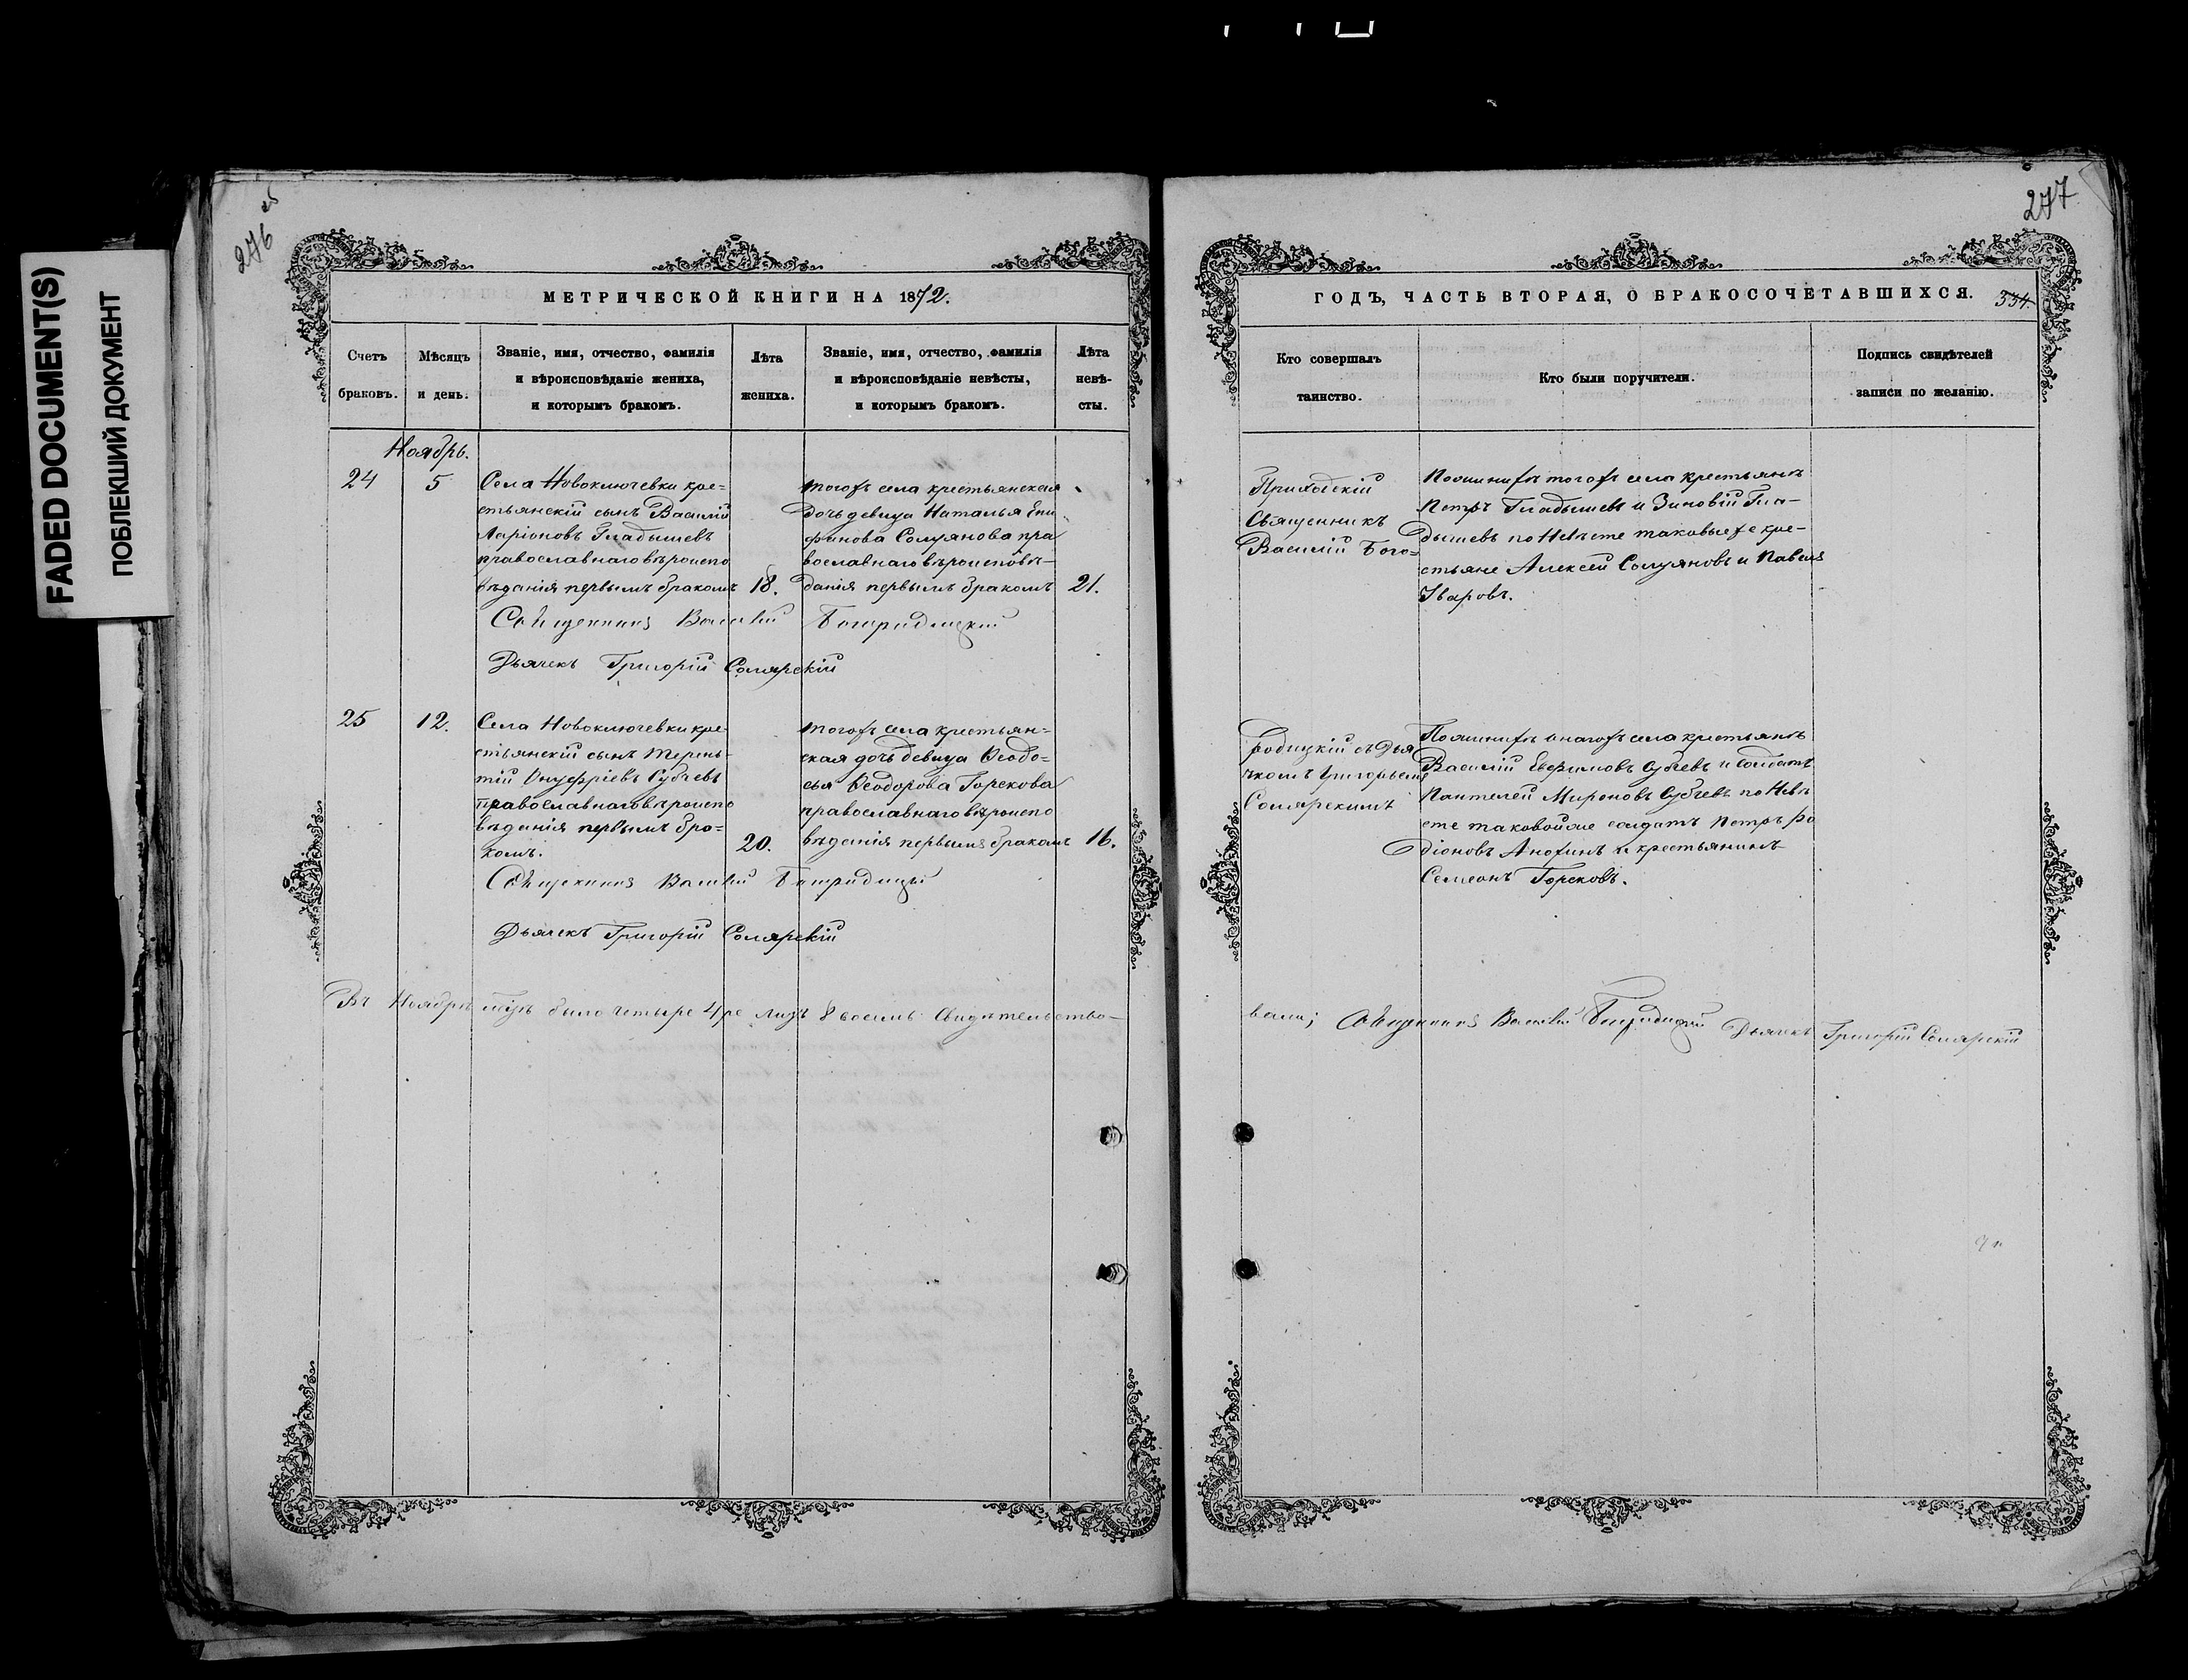 FADED DOCUMENT(S)
ПОБЛЕКШИЙ ДОКУМЕНТ
276 об
МЕТРИЧЕСКОЙ КНИГИ НА 1872.
Счетъ браковъ.
Мѣсяцъ и день.
Званіе, имя, отчество, фамилія
и вѣроисповѣданіе жениха,
и которымъ бракомъ.
Лѣта жениха.
Званіе, имя, отчество, фамилія
и вѣроисповѣданіе невѣсты,
и которымъ бракомъ.
Лѣта невѣ-
сты.
Ноябрь.
24
5
Села Новоключевки кре=
стьянскій сынъ Василій
Ларіоновъ Гладышевъ
православнаго вѣроиспо
вѣданія первымъ бракомъ
18.
тогожъ села крестьянская
дочь девица Наталья Епи
фанова Солуянова пра
вославнаго вѣроисповѣ-
данія первымъ бракомъ
21.
Священникъ Василій Богородицкій
Дьячекъ Григорій Солярскій
25
12.
Села Новоключевки кре
стьянскій сынъ Терень-
тій Онуфріевъ Субчевъ
православнаго вѣроиспо
вѣданія первымъ бра=
комъ.
20.
тогожъ села крестьян=
ская дочь девица Ѳеодо=
сья Ѳеодорова Горскова
православнаго вѣроиспо
вѣданія первымъ бракомъ
16.
Священникъ Василій Богородицкій
Дьячекъ Григорій Солярскій
Въ Ноябрѣ было четыре 4ре лицъ 8 восемь Свидѣтельство-
277
ГОДЪ, ЧАСТЬ ВТОРАЯ, О БРАКОСОЧЕТАВШИХСЯ.
334.
Кто совершалъ
таинство.
Кто были поручители.
Подпись свидѣтелей
записи по желанію.
Приходскій
Священникъ
Василій Бого=
По жениху тогожъ села крестьянъ
Петръ Гладышевъ и Зиновій Гла-
дышевъ по Невѣсте таковые же кре-
стьяне Алексей Солуяновъ и Павелъ
Уваровъ.
родицкій съ Дья
чкомъ Григорьемъ
Солярскимъ
По жениху онагожъ села крестьянъ
Василій Евфимовъ Субчевъ и Солдатъ
Пантелей Мироновъ Субчевъ по Невѣ
сте таковой же солдатъ Петръ Ро
діоновъ Анохинъ и крестьянинъ
Семеонъ Горсковъ.
вали; Священникъ Василій Богородицкій Дьячекъ Григорій Солярскій